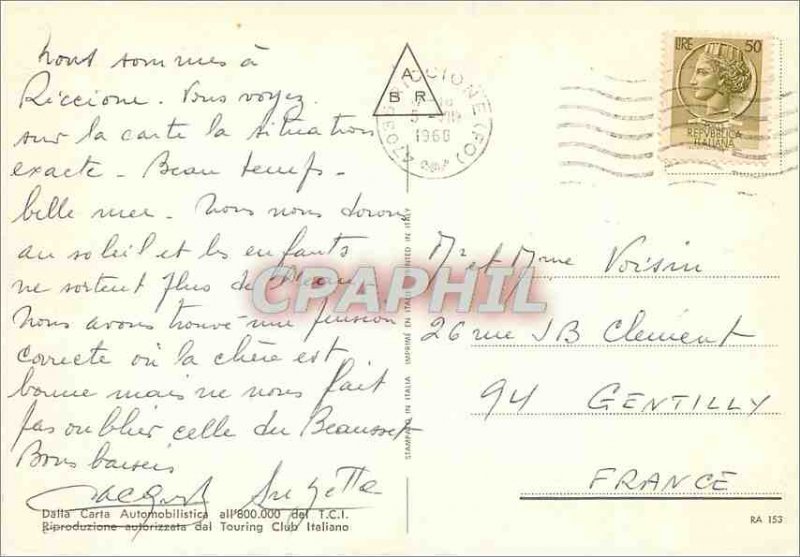 Nous sommes à
Riccione. Vous voyez
sur la carte la situation
exacte - Beau temps -
belle mer - Nous nous dorons
au soleil et les enfants
ne sortent plus de l'eau -
Nous avons trouvé une pension
correcte où la chère est
bonne mais ne nous fait
pas oublier celle du Beausset
Bons baisers
Suzette
Dalla Carta Automobilistica all'800.000 del T.C.I.
Riproduzione autorizzata dal Touring Club Italiano
STAMPATO IN ITALIA IMPRIMÉ EN ITALIE PRINTED IN ITALY
A
B R
RICCIONE (FO)
1968
LIRE 50
REPVBBLICA
ITALIANA
CPAPHIL
Mr et Mme Voisin
26 rue JB Clement
94 GENTILLY
FRANCE
RA 153